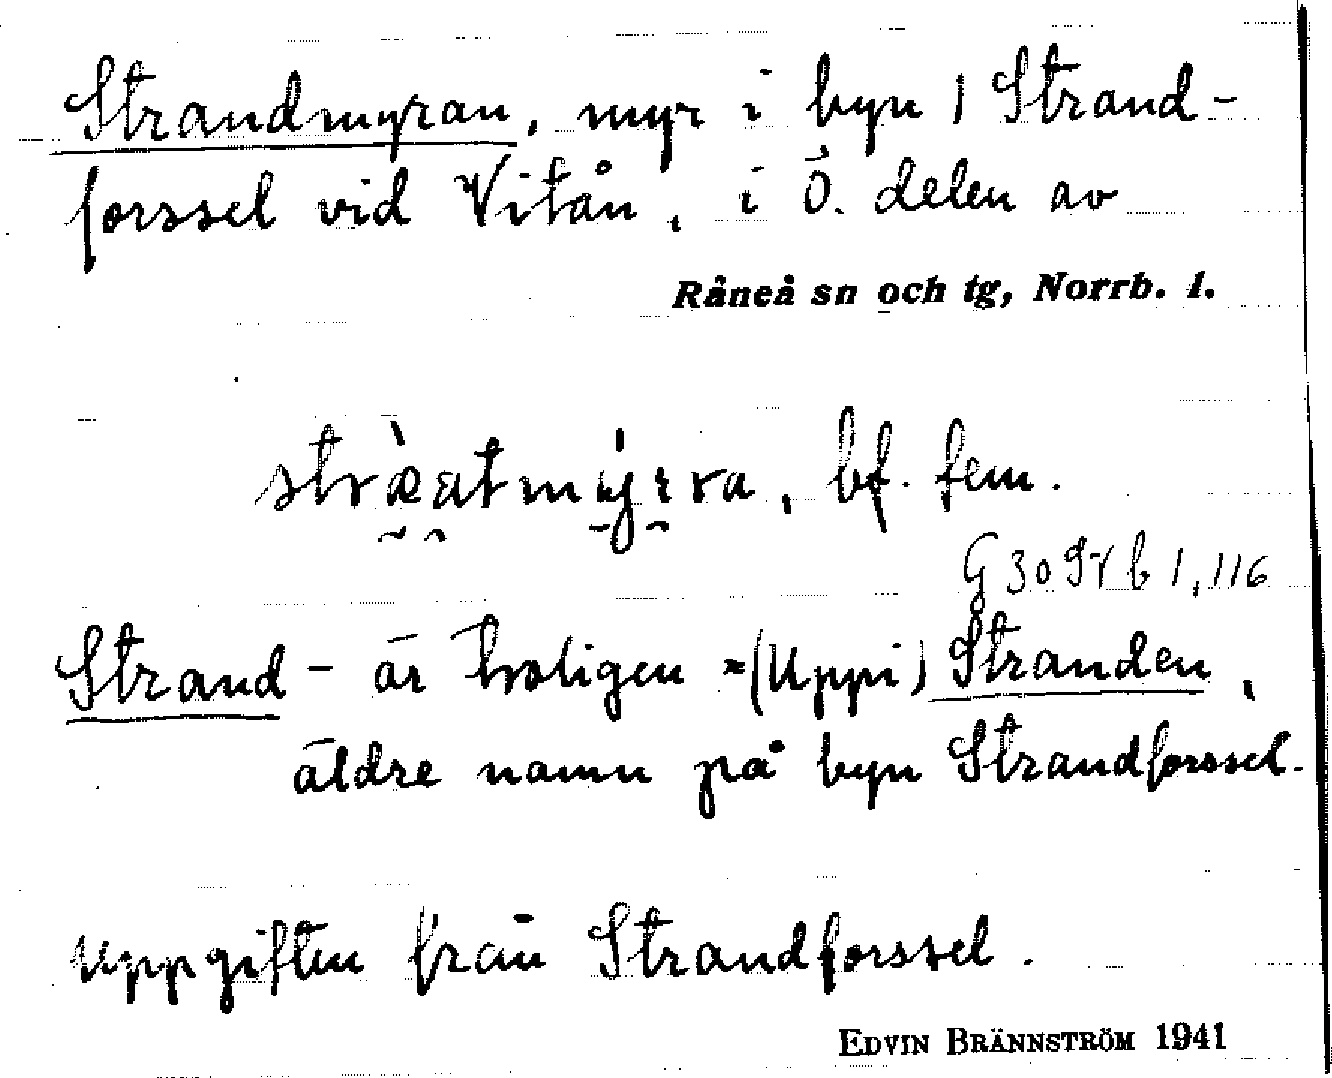 Strandmyran, myr i byn 1 Strand-
forssel vid Vitån, i Ö. delen av
Råneå sn och tg, Norrb. l.
bf. fem.
Strand- är troligen =(Uppi) Stranden,
äldre namn på byn Strandforssel.
Uppgiften från Strandforssel.
EDVIN BRÄNNSTRÖM 1941